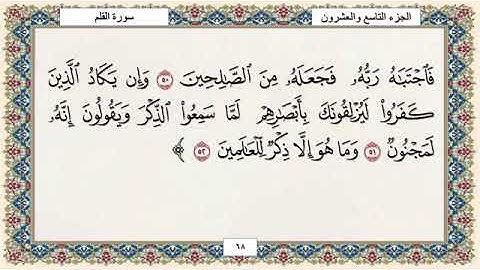 الجزء التاسع والعشرون
سورة القلم
فَٱجْتَبَٰهُ رَبُّهُۥ فَجَعَلَهُۥ مِنَ ٱلصَّٰلِحِينَ ٥٠ وَإِن يَكَادُ ٱلَّذِينَ
كَفَرُوا۟ لَيُزْلِقُونَكَ بِأَبْصَٰرِهِمْ لَمَّا سَمِعُوا۟ ٱلذِّكْرَ وَيَقُولُونَ إِنَّهُۥ
لَمَجْنُونٌ ٥١ وَمَا هُوَ إِلَّا ذِكْرٌ لِّلْعَٰلَمِينَ ٥٢ ﴾
٦٨